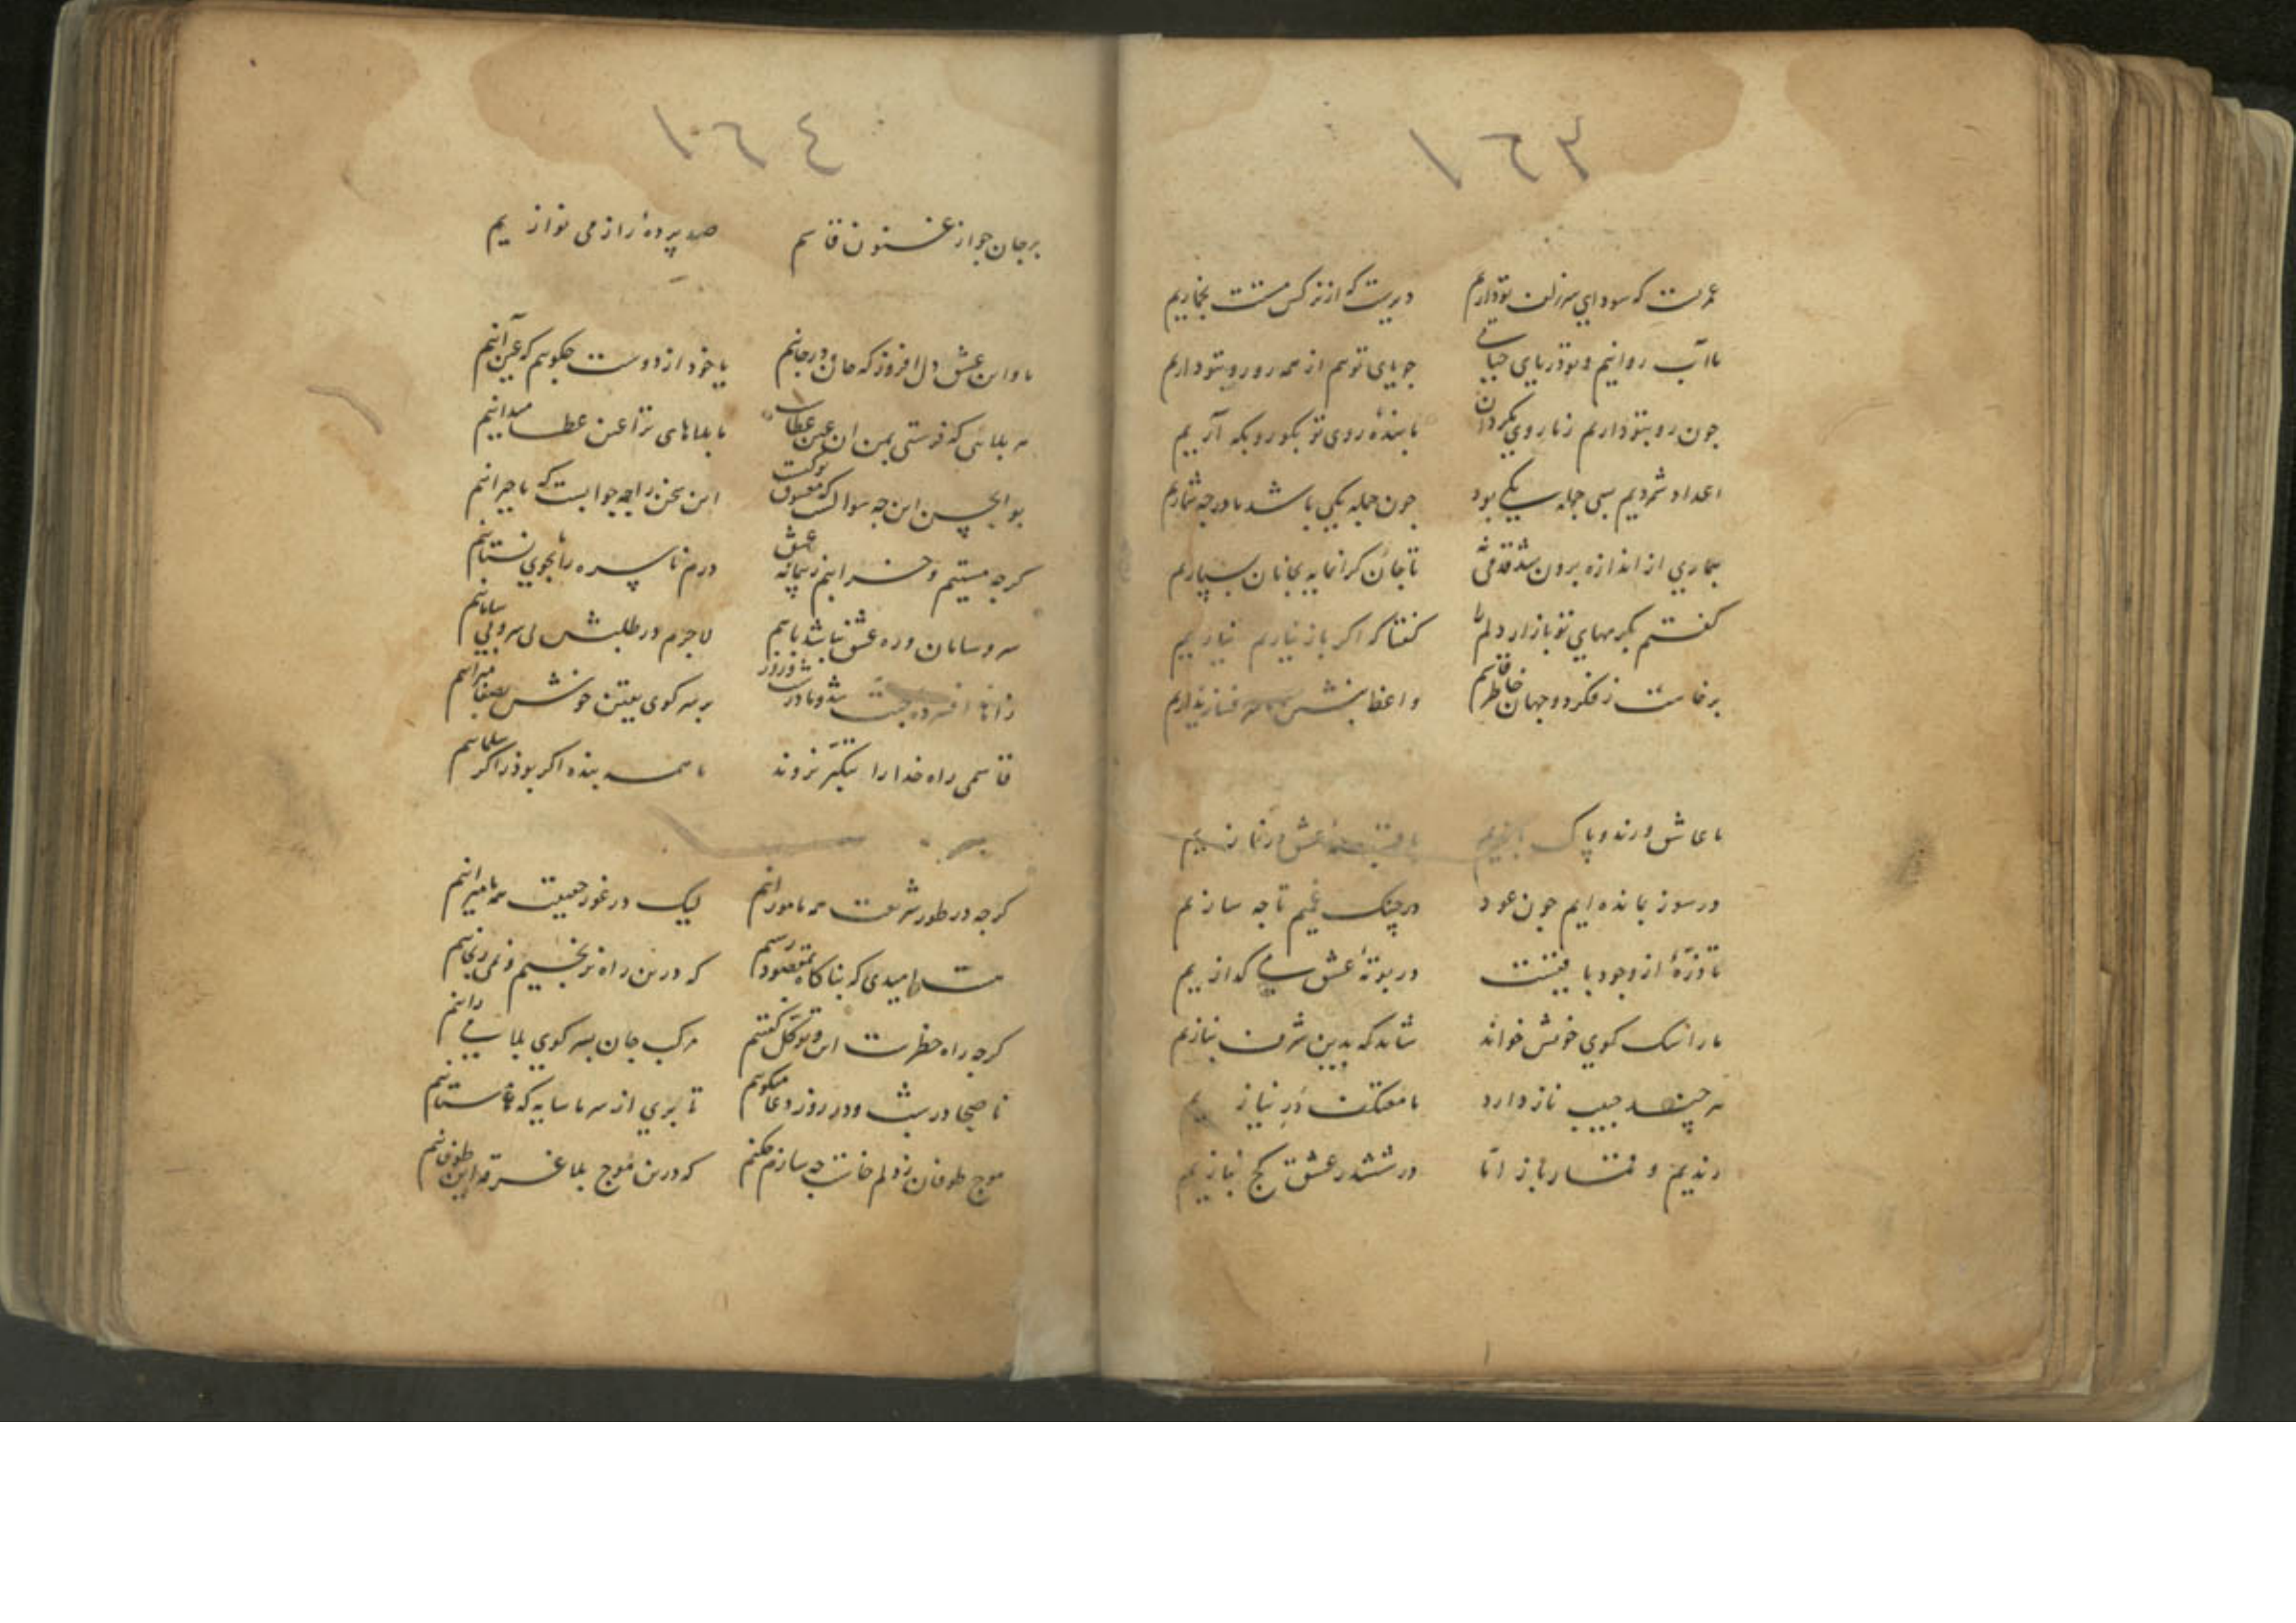 ١٦٣
عمریست که سودای سر زلف تو داریم دیریست که از نرگس مستت بخماریم
ما آب روانیم و تو دریای حیاتی جویای توییم از همه رو رو بتو داریم
چون رو بتو داریم ز ما روی مگردان ما بندهٔ روی تو بگو رو بکه آریم
اعداد شمردیم بسی جمله یکی بود چون جمله یکی باشد ما در چه شماریم
بیماری از اندازه برون شد قدمی نه تا جان گرانمایه بجانان بسپاریم
گفتم بکرمهای تو باز آر دلم را گفتا که اگر باز نیاریم نیاریم
برخاست ز فکر دو جهان خاطر قاسم واعظ بنشین
ما عاشق و رند و پاک بازیم
در سوز بمانده ایم چون عود در چنگ غمیم تا چه سازیم
تا ذرهٔ از وجود باقیست در بوتهٔ عشق می گدازیم
ما را سگ کوی خویش خواند شاید که بدین شرف بنازیم
هر چند حبیب ناز دارد ما معتکف در نیازیم
رندیم و قمارباز اما در ششدر عشق کج نبازیم
١٦٤
بر جان جو ارغنون قاسم صد پردهٔ راز می نوازیم
ما و این عشق دل افروز که جان در جانیم با خود از دوست چگوییم که عین آنیم
هر بلائی که فرستی بمن ان عین عطاست ما بلاهای ترا عین عطا میدانیم
بو الحسن این چه سوالست که معشوق تو کیست این سخن را چه جوابست که ما حیرانیم
گرچه مستیم و خرابیم ز پیمانه عشق درم ناسره را بجوی نستانیم
سر و سامان در ره عشق نباشد باهم لاجرم در طلبش بی سر و بی سامانیم
بر سر کوی یقین خوش
قاسمی راه خدا را بتکبر نروند ما همه بنده اگر بوذر اگر سلمانیم
گرچه در طور شریعت همه مامورانیم لیک در غور حقیقت همه ما میرانیم
هست امیدی که بناگاه بمقصود رسیم که درین راه نرنجیم و نمی رنجانیم
گرچه راه خطرست این و توکل گفتیم مرکب جان بسر کوی بلا می رانیم
ناصحا در شب و در روز دعا میگویم تا بری از سر ما سایه که ما مستانیم
موج طوفان ز دلم خاست چه سازم چکنم که درین موج بلا غرقه این طوفانیم